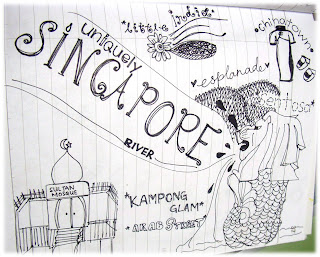 *little india*
uniquely
SINGAPORE
RIVER
*chinatown*
*esplanade*
sentosa
SULTAN
MOSQUE
*KAMPONG
GLAM*
*ARAB STREET*